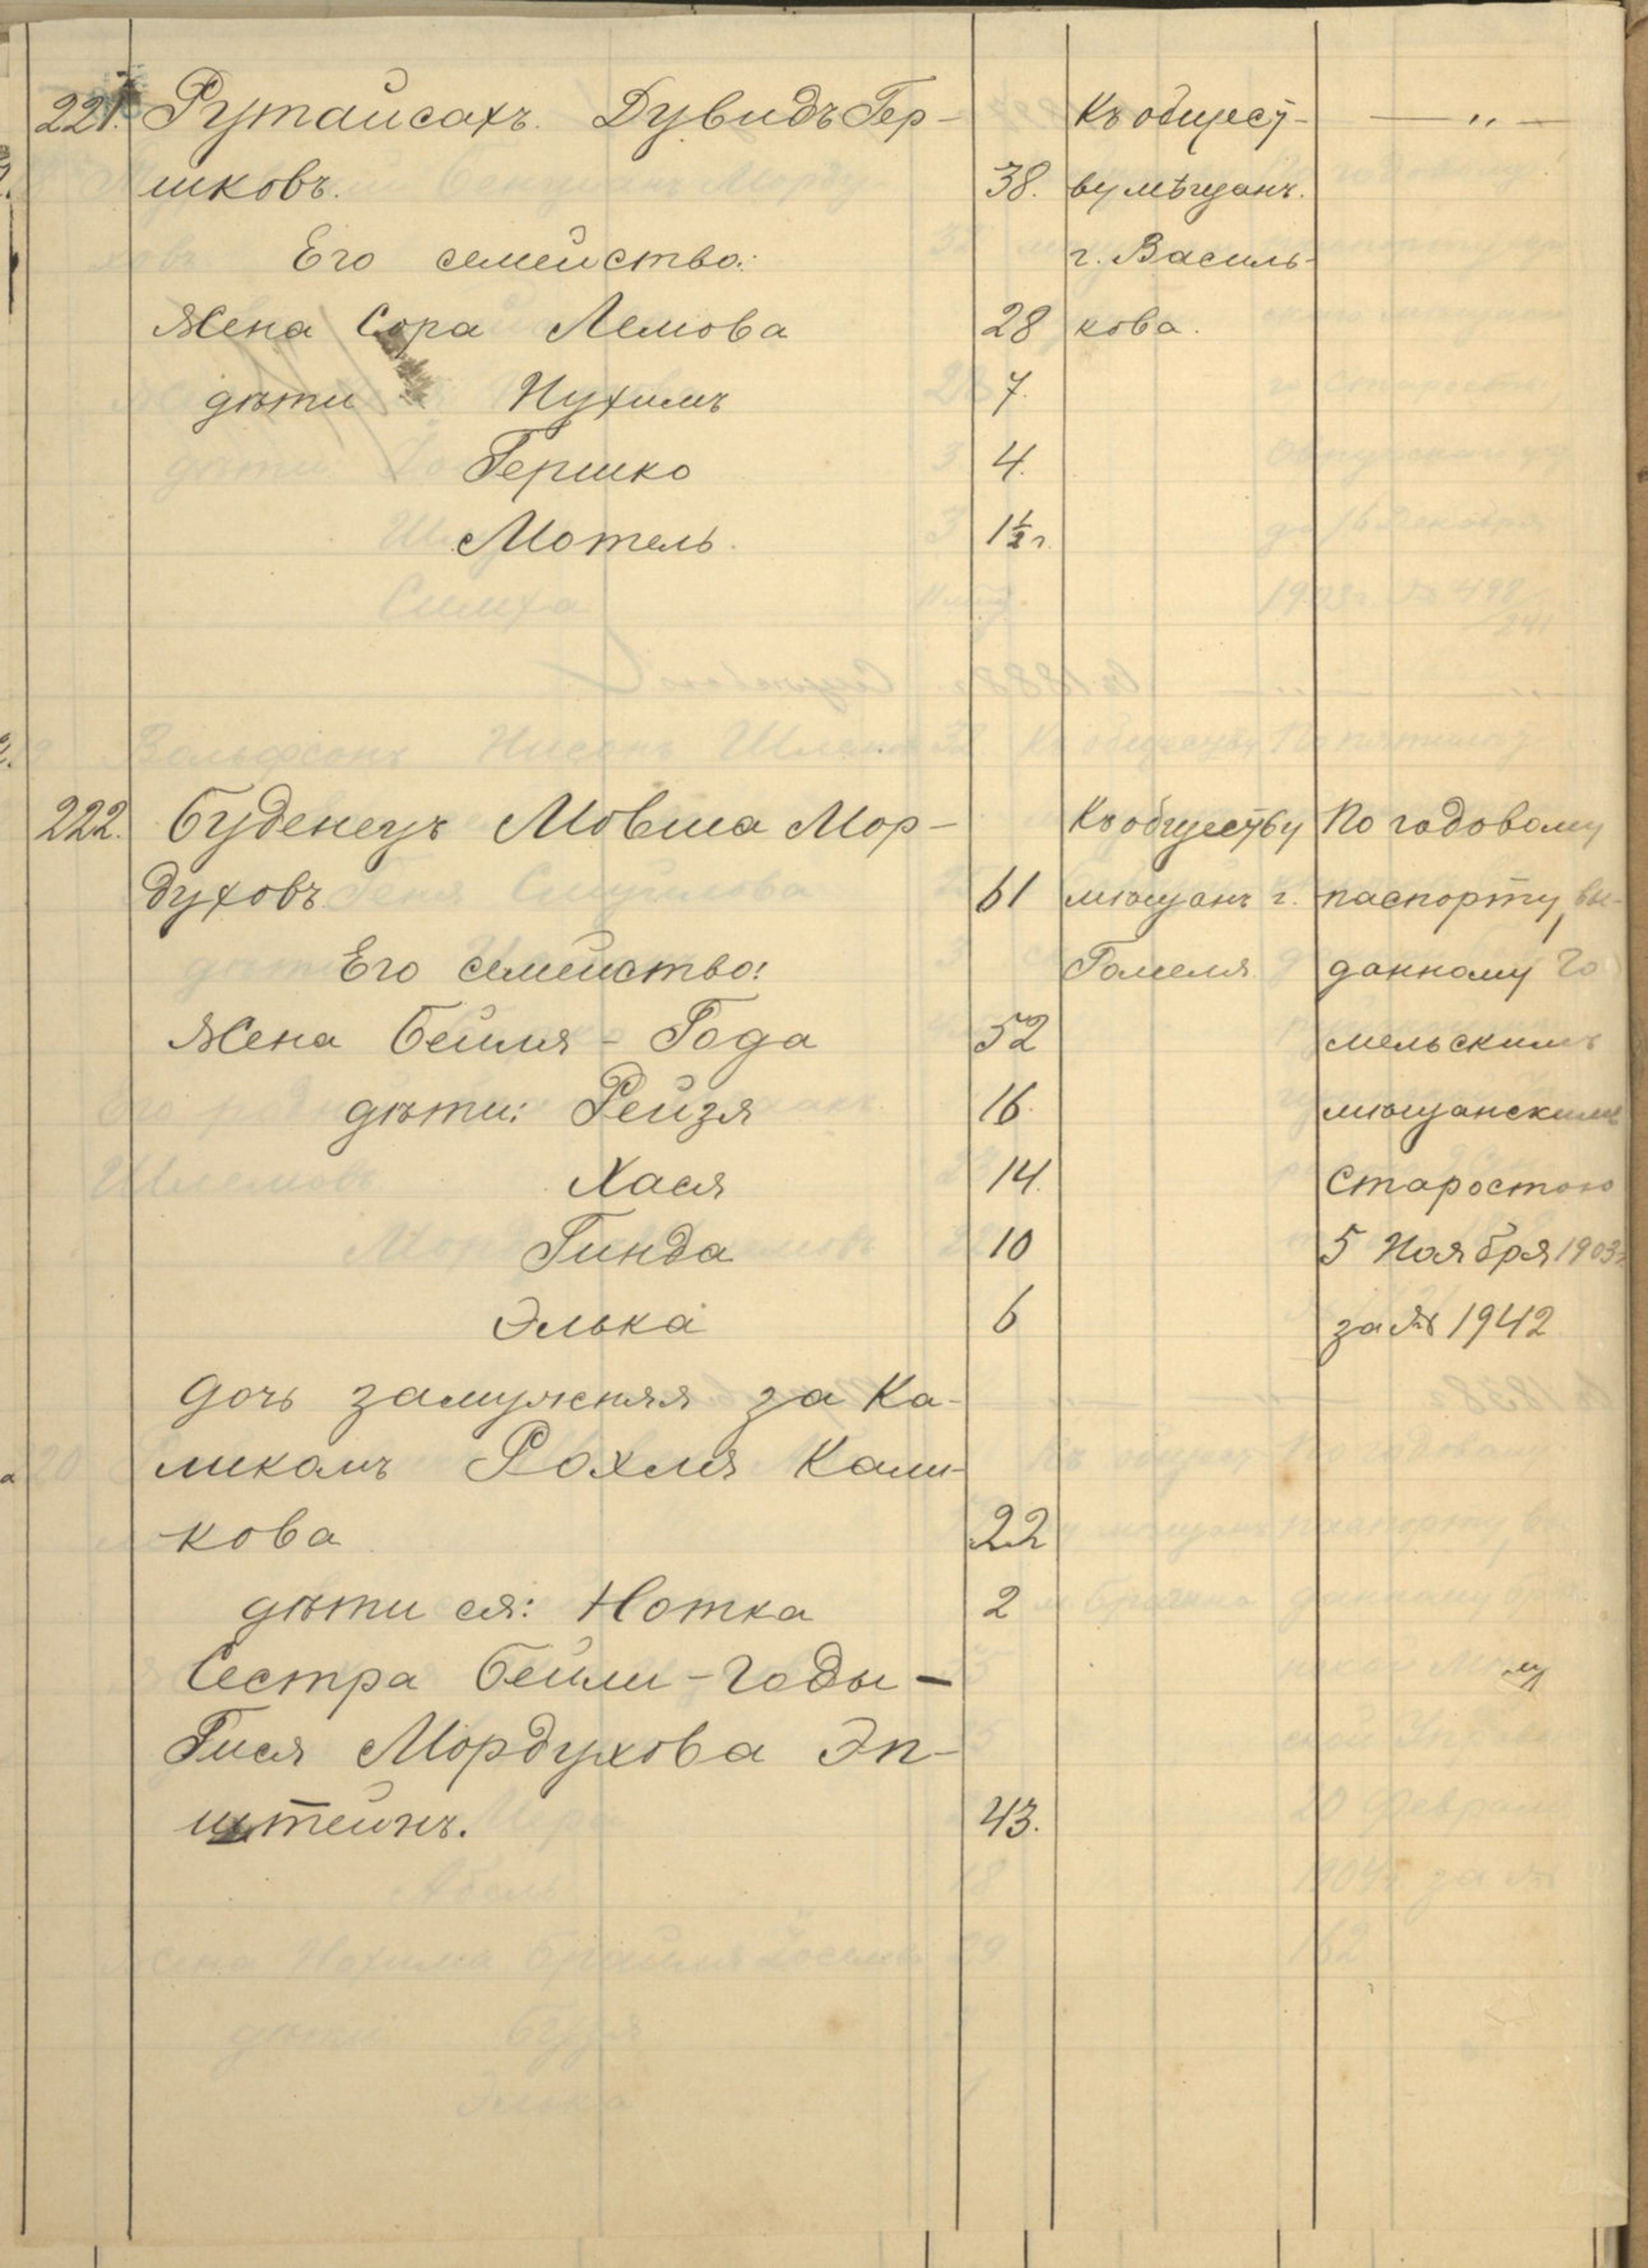 221. Рутайсахъ. Дувидъ Гер- Къ общест- — " —
шковъ. 38. ву мѣщанъ.
Его семейство: г. Василь-
Жена Сора Лемова 28 кова.
дѣти Нухимъ 7.
Гершко 4.
Мотель. 1½ г.
222. Буденецъ Мовша Мор- Къ обществу По годовому
духовъ 61 мѣщанъ г. паспорту, вы-
Его семейство: Гомеля. данному Го
Жена Бейля - Года 52 мельскимъ
дѣти: Рейзя 16. мѣщанскимъ
Хася 14. Старостою
Гинда 10 5 Ноября 1903 г.
Элька 6 за № 1942
дочь замужняя за Ка-
ликомъ Рохля Кали-
кова 22
дѣти ея: Нотка 2
Сестра Бейли-Годы -
Гися Мордухова Эп-
штейнъ. 43.